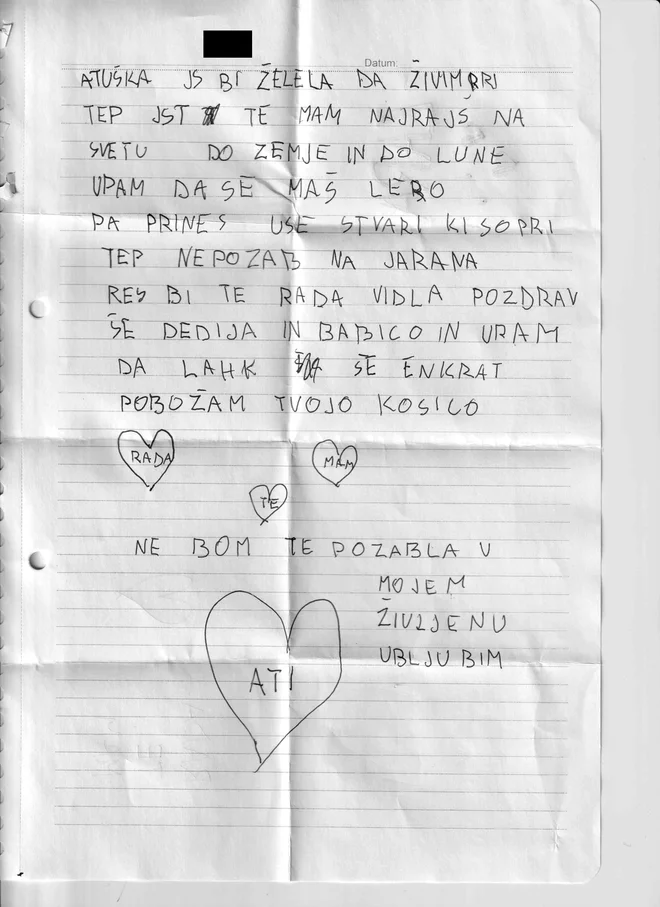 Datum:
ATUŠKA JS BI ŽELELA DA ŽIVIM PRI
TEP JST TE MAM NAJRAJŠ NA
SVETU DO ZEMJE IN DO LUNE
UPAM DA SE MAŠ LEPO
PA PRINES USE STVARI KI SO PRI
TEP NEPOZAB NA JARANA
RES BI TE RADA VIDLA POZDRAV
ŠE DEDIJA IN BABICO IN UPAM
DA LAHK ŠE ENKRAT
POBOŽAM TVOJO KOSICO
RADA
MAM
TE
NE BOM TE POZABLA V
MOJEM
ŽIVLJENU
UBLJUBIM
ATI